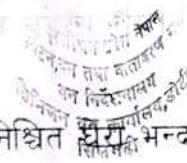 नेपाल
वन तथा वातावरण
वन निर्देशनालय
डिभिजन वन कार्यालय, डोटी
सिलगढी
निश्चित घेरा भन्द